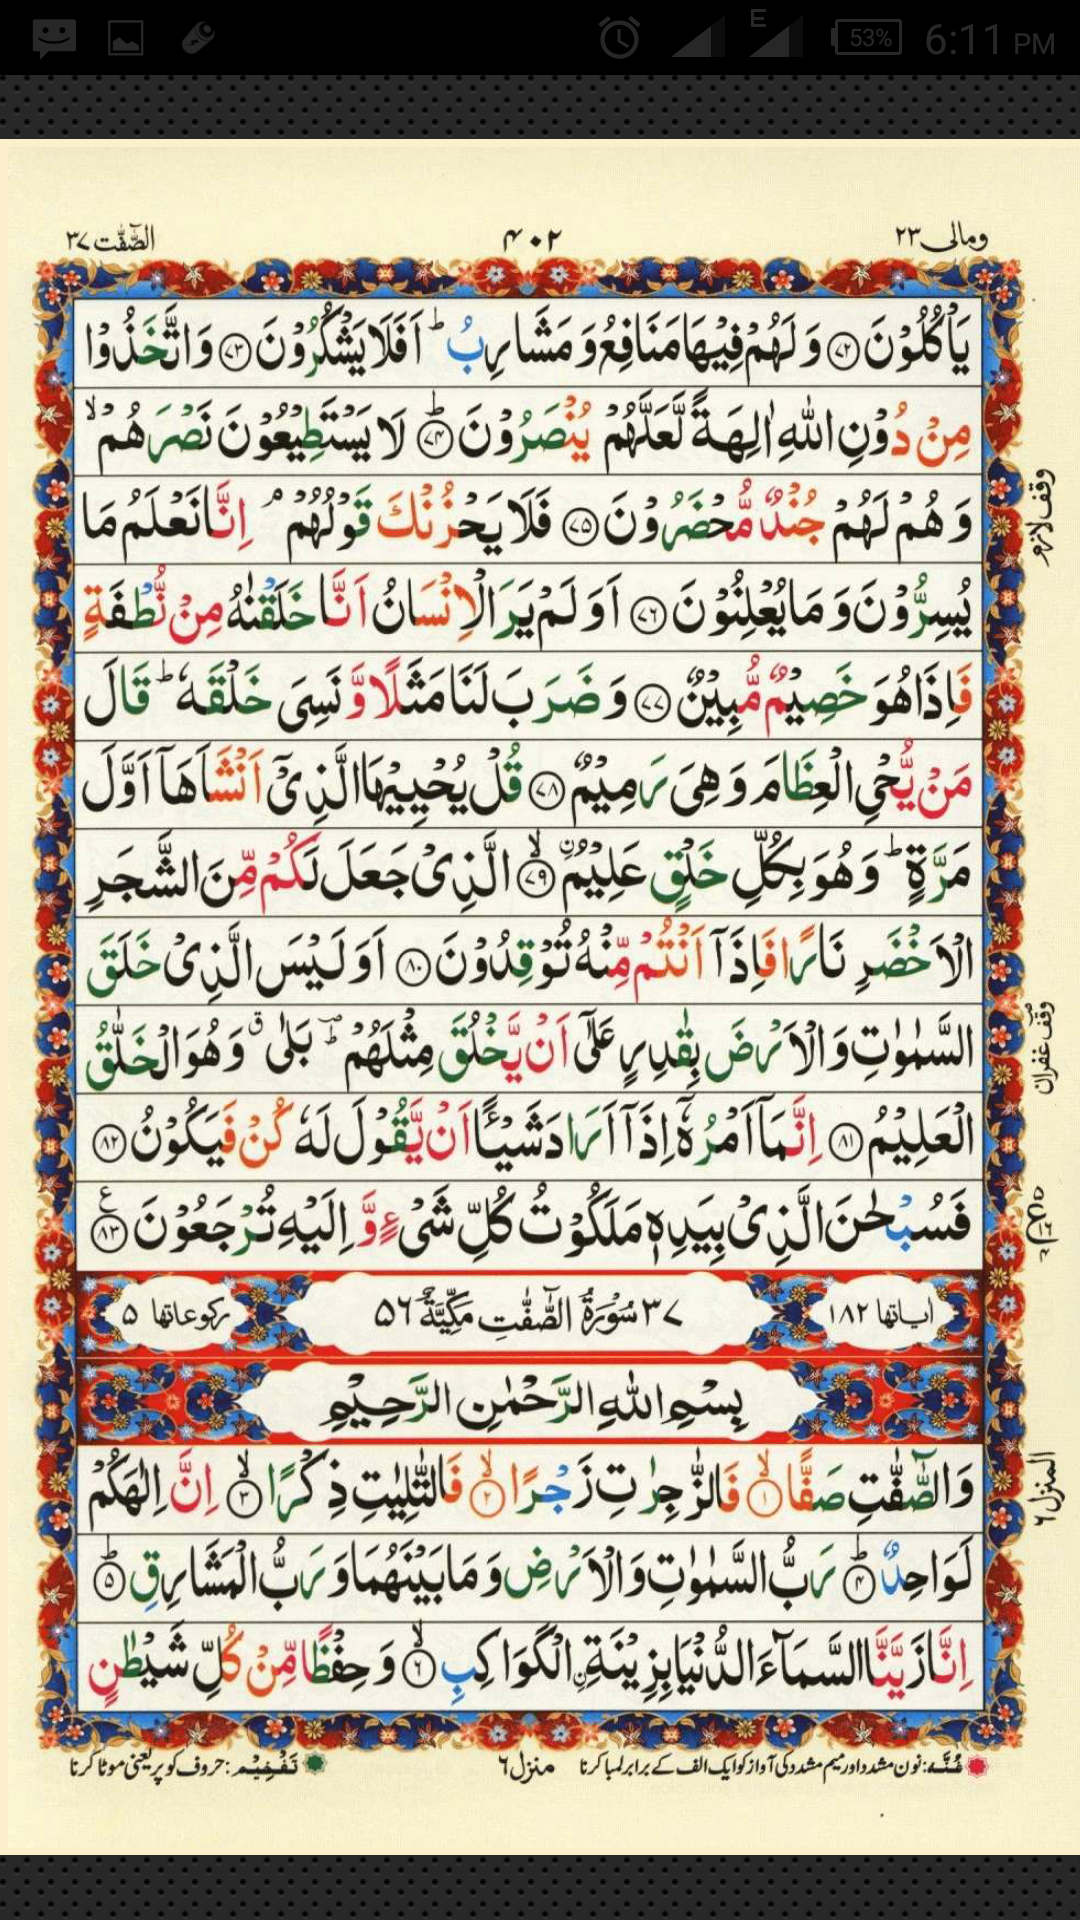 E 53% 6:11 PM
ومالی ٢٣ ٤٠٢ الصّٰٓفّٰت ٣٧
يَاْكُلُوْنَ ﴿٧٢﴾ وَ لَهُمْ فِيْهَا مَنَافِعُ وَ مَشَارِبُ ؕ اَفَلَا يَشْكُرُوْنَ ﴿٧٣﴾ وَ اتَّخَذُوْا
مِنْ دُوْنِ اللّٰهِ اٰلِهَةً لَّعَلَّهُمْ يُنْصَرُوْنَ ﴿٧٤﴾ؕ لَا يَسْتَطِيْعُوْنَ نَصْرَهُمْ ۙ
وَ هُمْ لَهُمْ جُنْدٌ مُّحْضَرُوْنَ ﴿٧٥﴾ فَلَا يَحْزُنْكَ قَوْلُهُمْ ۘ اِنَّا نَعْلَمُ مَا
يُسِرُّوْنَ وَ مَا يُعْلِنُوْنَ ﴿٧٦﴾ اَوَ لَمْ يَرَ الْاِنْسَانُ اَنَّا خَلَقْنٰهُ مِنْ نُّطْفَةٍ
فَاِذَا هُوَ خَصِيْمٌ مُّبِيْنٌ ﴿٧٧﴾ وَ ضَرَبَ لَنَا مَثَلًا وَّ نَسِیَ خَلْقَهٗ ؕ قَالَ
مَنْ يُّحْیِ الْعِظَامَ وَ هِیَ رَمِيْمٌ ﴿٧٨﴾ قُلْ يُحْيِيْهَا الَّذِیْۤ اَنْشَاَهَاۤ اَوَّلَ
مَرَّةٍ ؕ وَ هُوَ بِكُلِّ خَلْقٍ عَلِيْمُ ۨ ﴿٧٩﴾ۙ الَّذِیْ جَعَلَ لَكُمْ مِّنَ الشَّجَرِ
الْاَخْضَرِ نَارًا فَاِذَاۤ اَنْتُمْ مِّنْهُ تُوْقِدُوْنَ ﴿٨٠﴾ اَوَ لَيْسَ الَّذِیْ خَلَقَ
السَّمٰوٰتِ وَ الْاَرْضَ بِقٰدِرٍ عَلٰۤی اَنْ يَّخْلُقَ مِثْلَهُمْ ؔ بَلٰی ۗ وَ هُوَ الْخَلّٰقُ
الْعَلِيْمُ ﴿٨١﴾ اِنَّمَاۤ اَمْرُهٗۤ اِذَاۤ اَرَادَ شَيْـًٔا اَنْ يَّقُوْلَ لَهٗ كُنْ فَيَكُوْنُ ﴿٨٢﴾
فَسُبْحٰنَ الَّذِیْ بِيَدِهٖ مَلَكُوْتُ كُلِّ شَیْءٍ وَّ اِلَيْهِ تُرْجَعُوْنَ ﴿٨٣﴾ ع
اٰیاتها ١٨٢ ٣٧ سُوْرَةُ الصّٰٓفّٰتِ مَكِّيَّةٌ ٥٦ رکوعاتها ٥
بِسْمِ اللّٰهِ الرَّحْمٰنِ الرَّحِيْمِ
وَ الصّٰٓفّٰتِ صَفًّا ﴿١﴾ۙ فَالزّٰجِرٰتِ زَجْرًا ﴿٢﴾ۙ فَالتّٰلِيٰتِ ذِكْرًا ﴿٣﴾ۙ اِنَّ اِلٰهَكُمْ
لَوَاحِدٌ ﴿٤﴾ؕ رَبُّ السَّمٰوٰتِ وَ الْاَرْضِ وَ مَا بَيْنَهُمَا وَ رَبُّ الْمَشَارِقِ ﴿٥﴾ؕ
اِنَّا زَيَّنَّا السَّمَآءَ الدُّنْيَا بِزِيْنَةِ ۟اِلْكَوَاكِبِ ﴿٦﴾ۙ وَ حِفْظًا مِّنْ كُلِّ شَيْطٰنٍ
وقف لازم
وقف غفران
المنزل ٦
غُنّہ: نون مشدد اور میم مشدد کی آواز کو ایک الف کے برابر لمبا کرنا منزل ٦ تَفْخِیْم: حروف کو پُر یعنی موٹا کرنا